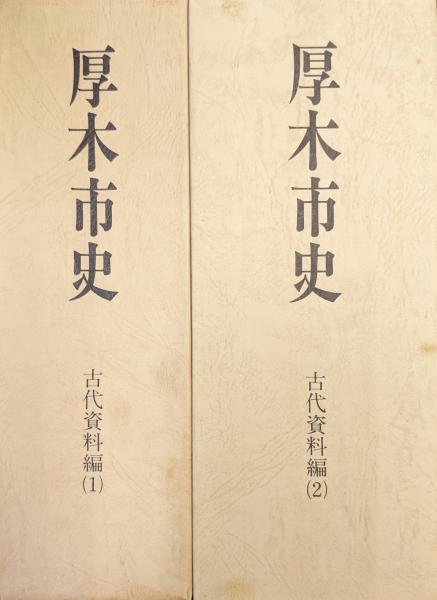 厚木市史
古代資料編(1)
厚木市史
古代資料編(2)